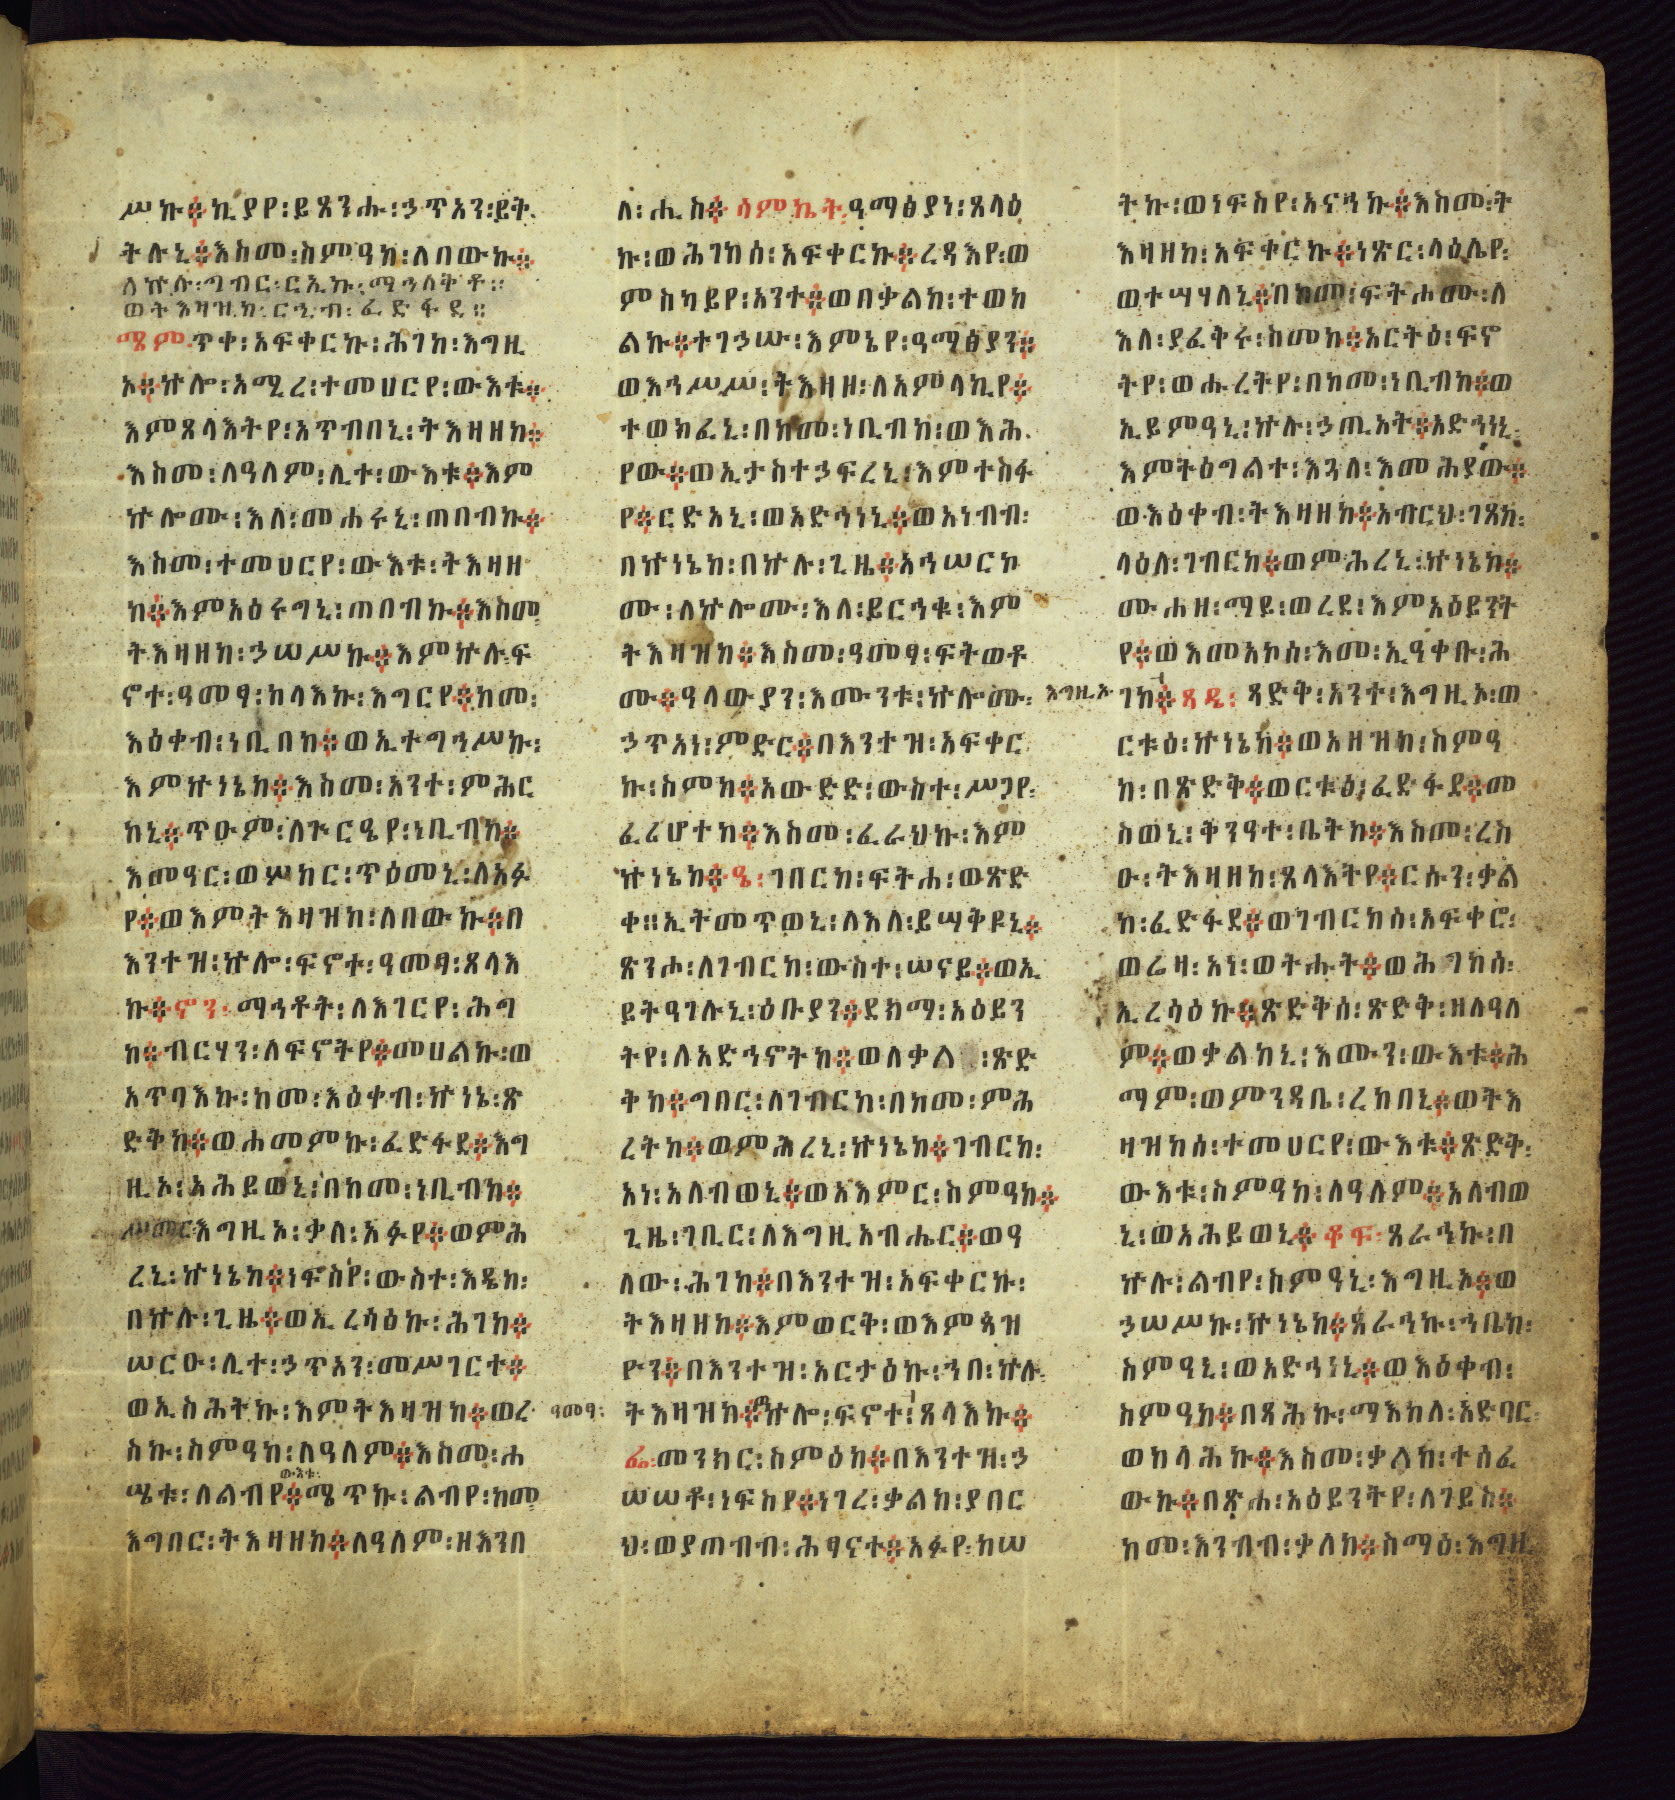 ሥኩ፨ኪያየ፡ይጸንሑ፡ኃጥአን፡ይት
ትሉኒ፨እስመ፡ስምዓከ፡ለበውኩ፨
ለኵሉ፡ግብር፡ርኢኩ፡ማኅለቅቶ።
ወትእዛዝከ፡ርኂብ፡ፈድፋደ።
ሜም፡ጥቀ፡አፍቀርኩ፡ሕገከ፡እግዚ
ኦ፨ኵሎ፡አሚረ፡ተመሀርየ፡ውእቱ፨
እምጸላእትየ፡አጥብበኒ፡ትእዛዘከ፨
እስመ፡ለዓለም፡ሊተ፡ውእቱ፨እም
ኵሎሙ፡እለ፡መሐሩኒ፡ጠበብኩ፨
እስመ፡ተመሀርየ፡ውእቱ፡ትእዛዘ
ከ፨እምአዕሩግኒ፡ጠበብኩ፨እስመ
ትእዛዘከ፡ኃሠሥኩ፨እምኵሉ፡ፍ
ኖተ፡ዓመፃ፡ከላእኩ፡እግርየ፨ከመ፡
እዕቀብ፡ነቢበከ፨ወኢተግኅሥኩ፡
እምኵነኔከ፨እስመ፡አንተ፡ምሕር
ከኒ፨ጥዑም፡ለጕርዔየ፡ነቢብከ፨
እመዓር፡ወሦከር፡ጥዕመኒ፡ለአፉ
የ፨ወእምትእዛዝከ፡ለበውኩ፨በ
እንተዝ፡ኵሎ፡ፍኖተ፡ዓመፃ፡ጸላእ
ኩ፨ኖን፡ማኅቶት፡ለእገርየ፡ሕግ
ከ፨ብርሃን፡ለፍኖትየ፨መሀልኩ፡ወ
አጥባእኩ፡ከመ፡እዕቀብ፡ኵነኔ፡ጽ
ድቅከ፨ወሐመምኩ፡ፈድፋደ፨እግ
ዚኦ፡አሕይወኒ፡በከመ፡ነቢብከ፨
ሥመር፡እግዚኦ፡ቃለ፡አፉየ፨ወምሕ
ረኒ፡ኵነኔከ፨ነፍስየ፡ውስተ፡እዴከ፡
በኵሉ፡ጊዜ፨ወኢረሳዕኩ፡ሕገከ፨
ሠርዑ፡ሊተ፡ኃጥአን፡መሥገርተ፨
ወኢስሕትኩ፡እምትእዛዝከ፨ወረ
ስኩ፡ስምዓከ፡ለዓለም፨እስመ፡ሐ
ውእቱ፡
ሤቱ፡ለልብየ፨ሜጥኩ፡ልብየ፡ከመ
እግበር፡ትእዛዘከ፨ለዓለም፡ዘእንበ
ለ፡ሒስ፨ሳምኬት፡ዓማፅያነ፡ጸላዕ
ኩ፡ወሕገከሰ፡አፍቀርኩ፨ረዳእየ፡ወ
ምስካይየ፡አንተ፨ወበቃልከ፡ተወከ
ልኩ፨ተገኃሡ፡እምኔየ፡ዓማፅያን፨
ወእኅሥሥ፡ትእዛዘ፡ለአምላኪየ፨
ተወክፈኒ፡በከመ፡ነቢብከ፡ወእሕ
የው፨ወኢታስተኃፍረኒ፡እምተስፋ
የ፨ርድአኒ፡ወአድኅነኒ፨ወአነብብ፡
በኵነኔከ፡በኵሉ፡ጊዜ፨አኅሠርኮ
ሙ፡ለኵሎሙ፡እለ፡ይርኅቁ፡እም
ትእዛዝከ፨እስመ፡ዓመፃ፡ፍትወቶ
ሙ፨ዓላውያን፡እሙንቱ፡ኵሎሙ፡
ኃጥአነ፡ምድር፨በእንተዝ፡አፍቀር
ኩ፡ስምከ፨አውድድ፡ውስተ፡ሥጋየ፡
ፈሪሆተከ፨እስመ፡ፈራህኩ፡እም
ኵነኔከ፨ዔ፡ገበርከ፡ፍትሐ፡ወጽድ
ቀ።ኢትመጥወኒ፡ለእለ፡ይሣቅዩኒ፨
ጽንሖ፡ለገብርከ፡ውስተ፡ሠናይ፨ወኢ
ይትዓገሉኒ፡ዕቡያን፨ደክማ፡አዕይን
ትየ፡ለአድኅኖትከ፨ወለቃል፡ጽድ
ቅከ፨ግበር፡ለገብርከ፡በከመ፡ምሕ
ረትከ፨ወምሕረኒ፡ኵነኔከ፨ገብርከ፡
አነ፡አለብወኒ፨ወአእምር፡ስምዓከ፨
ጊዜ፡ገቢር፡ለእግዚአብሔር፨ወዓ
ለው፡ሕገከ፨በእንተዝ፡አፍቀርኩ፡
ትእዛዘከ፨እምወርቅ፡ወእምጳዝ
ዮን፨በእንተዝ፡አርታዕኩ፡ኀበ፡ኵሉ
ዓመፃ፡
ትእዛዝከ፨ኵሎ፡ፍኖተ፡ጸላእኩ፨
ፌ፡መንክር፡ስምዕከ፨በእንተዝ፡ኃ
ሠሠቶ፡ነፍስየ፨ነገረ፡ቃልከ፡ያበር
ህ፡ወያጠብብ፡ሕፃናተ፨አፉየ፡ከሠ
ትኩ፡ወነፍስየ፡አናኅኩ፨እስመ፡ት
እዛዘከ፡አፍቀርኩ፨ነጽር፡ላዕሌየ፡
ወተሣሃለኒ፨በከመ፡ፍትሐሙ፡ለ
እለ፡ያፈቅሩ፡ስመከ፨አርትዕ፡ፍኖ
ትየ፡ወሑረትየ፡በከመ፡ነቢብከ፨ወ
ኢይምዓኒ፡ኵሉ፡ኃጢአት፨አድኅነኒ፡
እምትዕግልተ፡እጓለ፡እመሕያው፨
ወእዕቀብ፡ትእዛዘከ፨አብርህ፡ገጸከ፡
ላዕለ፡ገብርከ፨ወምሕረኒ፡ኵነኔከ፨
ሙሐዘ፡ማይ፡ወረደ፡እምአዕይንት
የ፨ወእመአኮሰ፡እመ፡ኢዓቀቡ፡ሕ
እግዚኦ
ገከ፨ጻዴ፡ጻድቅ፡አንተ፡እግዚኦ፡ወ
ርቱዕ፡ኵነኔከ፨ወአዘዝከ፡ስምዓ
ከ፡በጽድቅ፨ወርቱዕ፡ፈድፋደ፨መ
ሰወኒ፡ቅንዓተ፡ቤትከ፨እስመ፡ረስ
ዑ፡ትእዛዘከ፡ጸላእትየ፨ርሱን፡ቃል
ከ፡ፈድፋደ፨ወገብርከሰ፡አፍቀሮ፡
ወሬዛ፡አነ፡ወትሑት፨ወሕገከሰ፡
ኢረሳዕኩ፨ጽድቅሰ፡ጽድቅ፡ዘለዓለ
ም፨ወቃልከኒ፡እሙን፡ውእቱ፨ሕ
ማም፡ወምንዳቤ፡ረከበኒ፨ወትእ
ዛዝከሰ፡ተመሀርየ፡ውእቱ፨ጽድቅ፡
ውእቱ፡ስምዓከ፡ለዓለም፨አለብወ
ኒ፡ወአሕይወኒ፨ቆፍ፡ጸራኅኩ፡በ
ኵሉ፡ልብየ፡ስምዓኒ፡እግዚኦ፨ወ
ኃሠሥኩ፡ኵነኔከ፨ጸራኅኩ፡ኀቤከ፡
ስምዓኒ፡ወአድኅነኒ፨ወእዕቀብ፡
ስምዓከ፨በጻሕኩ፡ማእከለ፡አድባር፡
ወከላሕኩ፨እስመ፡ቃለከ፡ተሰፈ
ውኩ፨በጽሐ፡አዕይንትየ፡ለገይስ፨
ከመ፡እንብብ፡ቃለከ፨ስማዕ፡እግዚ